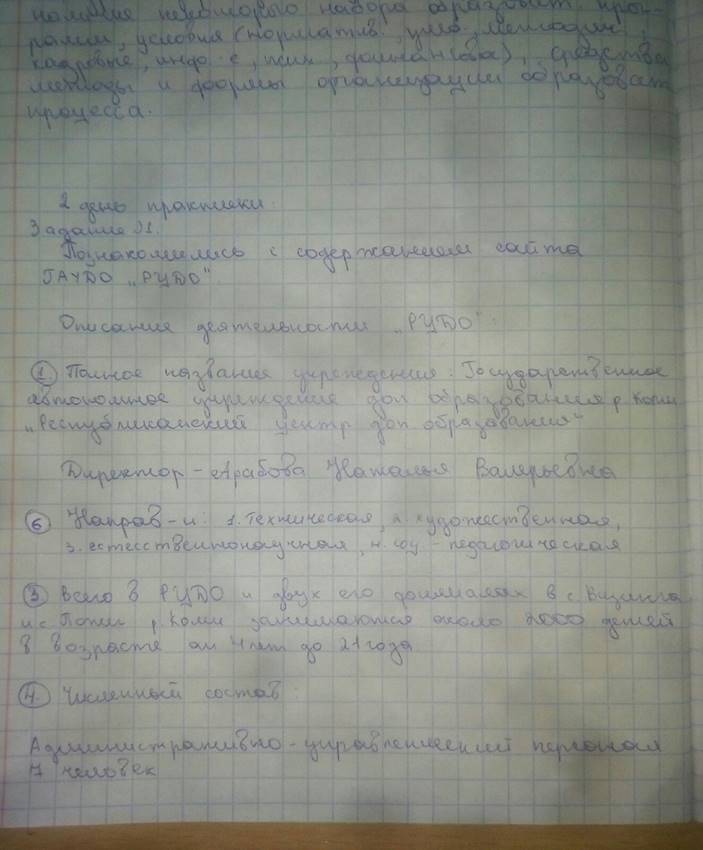 наличие некоторого набора образоват. прог-
рамм, условия (норматив., учеб., методич.,
кадровые, инф. с, псих., финансова), средства
методы и формы организации образоват
процесса.
2 день практики.
Задание 1.
Познакомились с содержанием сайта
ГАУДО „РЦДО"
Описание деятельности „РЦДО".
① Полное название учреждения: Государственное
автономное учреждение доп образования р Коми
„Республиканский центр доп образования"
Директор – Арабова Наталья Валерьевна
⑥ Направ-и: 1. Техническая, 2. художественная,
3. естесственнонаучная, 4. соц - педагогическая
③ Всего в РЦДО и двух его филиалах в с Визинга
и с Потьи р Коми занимаются около 2000 детей
в возрасте от 4 лет до 21 года
④. Численный состав:
Административно-управленческий персонал
7 человек